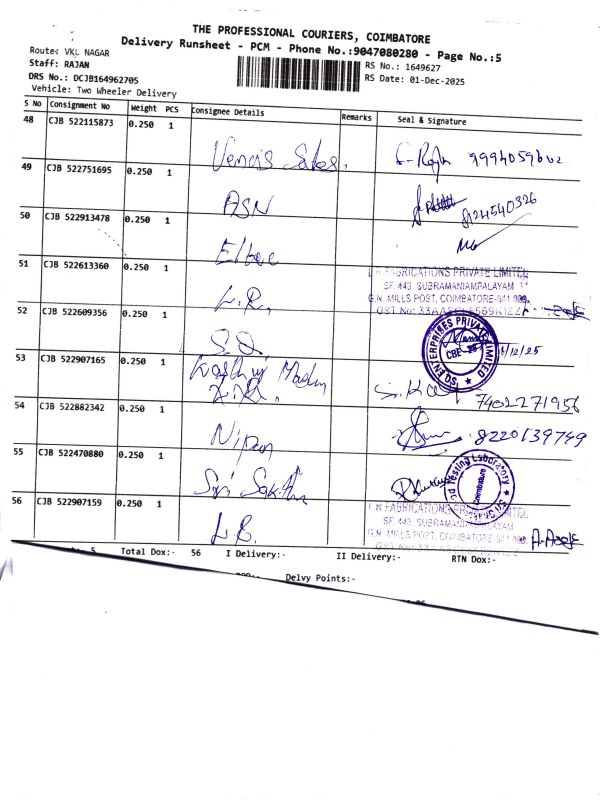 THE PROFESSIONAL COURIERS, COIMBATORE
Delivery Runsheet - PCM - Phone No.:9047080280 - Page No.:5
Route: VKL NAGAR
Staff: RAJAN
DRS No.: DCJB164962705
Vehicle: Two Wheeler Delivery
RS No.: 1649627
RS Date: 01-Dec-2025
S No Consignment No Weight PCS Consignee Details Remarks Seal & Signature
48 CJB 522115873 0.250 1 Sales. 9994059602
49 CJB 522751695 0.250 1 ASN 8124540326
50 CJB 522913478 0.250 1
51 CJB 522613360 0.250 1 L.R,
LR FABRICATIONS PRIVATE LIMITED
SF. 443, SUBRAMANIAMPALAYAM
G.N. MILLS POST, COIMBATORE-641 029.
52 CJB 522609356 0.250 1 S.Q.
SQ ENTERPRISES PRIVATE LIMITED
CBE
1/12/25
53 CJB 522907165 0.250 1
7402271956
54 CJB 522882342 0.250 1 Nipun 8220139749
55 CJB 522470880 0.250 1 Sakthi
Testing Laboratory
Coimbatore
56 CJB 522907159 0.250 1 L.R.
LR FABRICATIONS PRIVATE LIMITED
SF. 443, SUBRAMANIAMPALAYAM
G.N. MILLS POST, COIMBATORE-641 029.
5 Total Dox:- 56 I Delivery:- II Delivery:- RTN Dox:-
Delvy Points:-